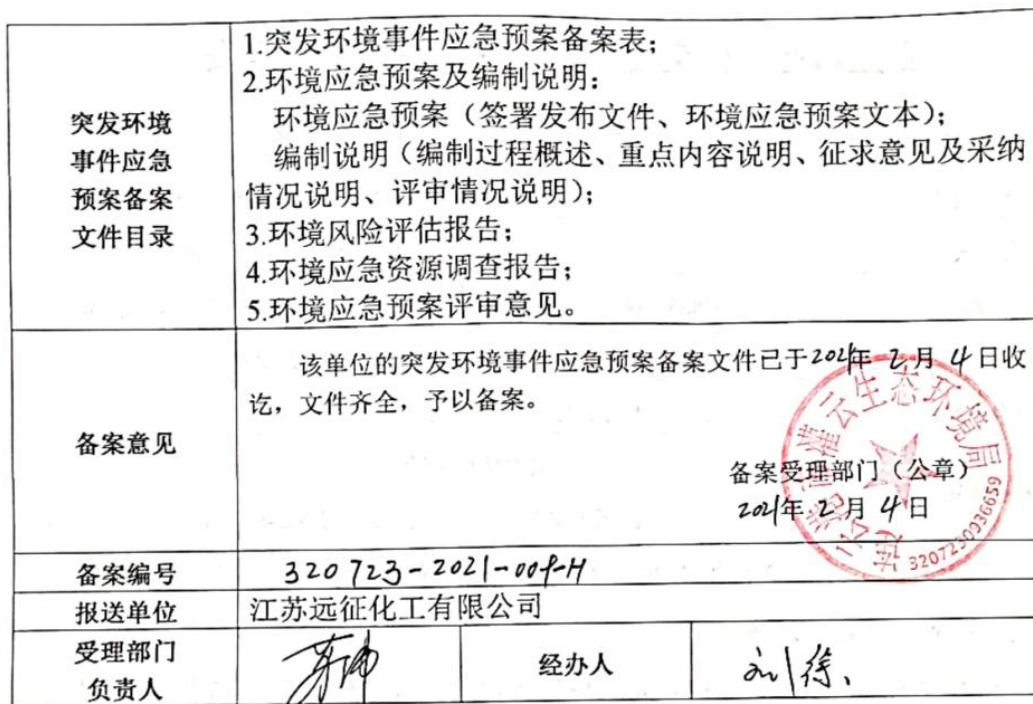 突发环境
事件应急
预案备案
文件目录
1.突发环境事件应急预案备案表;
2.环境应急预案及编制说明:
环境应急预案（签署发布文件、环境应急预案文本）;
编制说明（编制过程概述、重点内容说明、征求意见及采纳
情况说明、评审情况说明）;
3.环境风险评估报告;
4.环境应急资源调查报告;
5.环境应急预案评审意见。
备案意见
该单位的突发环境事件应急预案备案文件已于2021年 2月 4日收
讫，文件齐全，予以备案。
备案受理部门（公章）
2021年 2月 4日
连云港市灌云生态环境局
3207230936659
备案编号
320723-2021-009-H
报送单位
江苏远征化工有限公司
受理部门
负责人
经办人